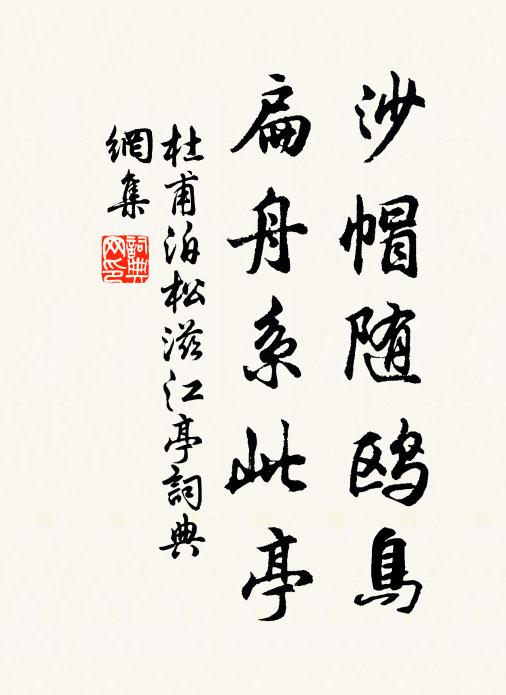 沙帽随鸥鳥
扁舟系此亭
杜甫泊松滋江亭詞典
網集
詞典网印